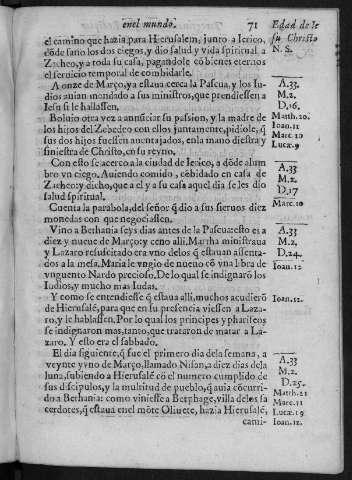 enel mundo. 71
Edad de Ie
su Christo
N. S.
el camino que hazia para Hierusalem, junto a Ierico,
dõde sano los ciegos, y dio salud y vida spiritual a
Zacheo, y a toda su casa, pagandole cõ bienes eternos
el seruicio temporal de combidarle.
A onze de Março, ya estaua cerca la Pascua, y los Iu-
dios auian mandado a sus ministros, que prendiessen a
Iesu si le hallassen.
A.33
M.2.
D.16.
Boluio otra vez a anũciar su passion, y la madre de
los hijos del Zebedeo con ellos juntamente, pidiole, q̃
sus dos hijos fuessen auentajados, enla mano diestra y
siniestra de Christo, en su reyno.
Matth.20.
Ioan.11
Marc.10
Lucæ.9
Con esto se acerco a la ciudad de Ierico, a dõde alum
bro vn ciego. Auiendo comido, cõbidado en casa de
Zacheo: y dicho, que a el y a su casa aquel dia se les dio
salud spiritual.
A.33
M.2.
D.17
Cuenta la parabola, del señor q̃ dio a sus sieruos diez
monedas con que negociassen.
Marc.10
Vino a Bethania seys dias antes de la Pascua: esto es a
diez y nueue de Março: y ceno alli, Martha ministraua
y Lazaro resuscitado era vno delos q̃ estauan assenta-
dos a la mesa. Maria le vngio de nueuo cõ vna libra de
vnguento Nardo precioso. De lo qual se indignarõ los
Iudios, y mucho mas Iudas.
A.33
M.2.
D.24.
Ioan.12
Y como se entendiesse q̃ estaua alli, muchos acudierõ
de Hierusalẽ, para que en su presencia viessen a Laza-
ro, y le hablassen. Por lo qual los principes y phariseos
se indignaron mas, tanto, que trataron de matar a La-
zaro. Y esto era el sabbado.
Ioan.12.
El dia siguiente, q̃ fue el primero dia dela semana, a
veynte y vno de Março, llamado Nisan, a diez dias dela
luna, subiendo a Hierusalẽ cõ el numero cumplido de
sus discipulos, y la multitud de pueblo, q̃ auia cõcurri-
do a Bethania: como viniesse a Betphage, villa delos sa
cerdotes, q̃ estaua enel mõte Oliuete, hazia Hierusalẽ,
cami-
A.33
M.2.
D.25.
Matth.21
Marc.11
Lucæ.19
Ioan.12.